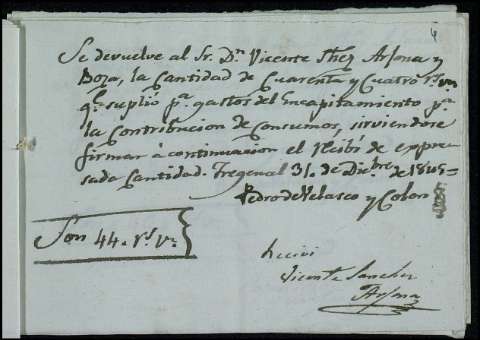 4
Se devuelve al Sr. Dn. Vicente Shez Arjona y
Boza, la Cantidad de Cuarenta y Cuatro rs. vn
qe. suplió pa. gastos del Encapitamiento pa.
la Contribucion de Consumos, sirviendose
firmar à continuacion el Recibi de expre
sada Cantidad. Fregenal 31, de Dicbre. de
Pedro de Velasco y Colon
Son 44. rs. vn.
Recivi
Vicente Sanchez
Arjona